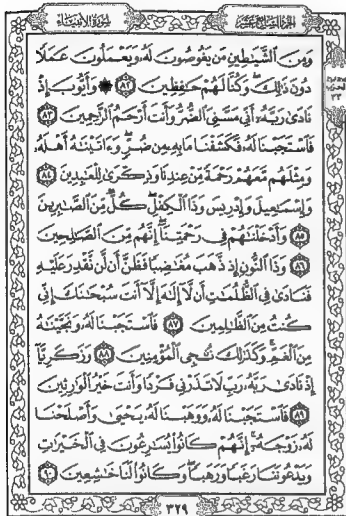 الجزء السابع عشر
سورة الأنبياء
وَمِنَ الشَّيَاطِينِ مَن يَغُوصُونَ لَهُ وَيَعْمَلُونَ عَمَلًا
دُونَ ذَٰلِكَ ۖ وَكُنَّا لَهُمْ حَافِظِينَ ٨٢ ۞ وَأَيُّوبَ إِذْ
نَادَىٰ رَبَّهُ أَنِّي مَسَّنِيَ الضُّرُّ وَأَنتَ أَرْحَمُ الرَّاحِمِينَ ٨٣
فَاسْتَجَبْنَا لَهُ فَكَشَفْنَا مَا بِهِ مِن ضُرٍّ ۖ وَآتَيْنَاهُ أَهْلَهُ
وَمِثْلَهُم مَّعَهُمْ رَحْمَةً مِّنْ عِندِنَا وَذِكْرَىٰ لِلْعَابِدِينَ ٨٤
وَإِسْمَاعِيلَ وَإِدْرِيسَ وَذَا الْكِفْلِ ۖ كُلٌّ مِّنَ الصَّابِرِينَ
٨٥ وَأَدْخَلْنَاهُمْ فِي رَحْمَتِنَا ۖ إِنَّهُم مِّنَ الصَّالِحِينَ
٨٦ وَذَا النُّونِ إِذ ذَّهَبَ مُغَاضِبًا فَظَنَّ أَن لَّن نَّقْدِرَ عَلَيْهِ
فَنَادَىٰ فِي الظُّلُمَاتِ أَن لَّا إِلَٰهَ إِلَّا أَنتَ سُبْحَانَكَ إِنِّي
كُنتُ مِنَ الظَّالِمِينَ ٨٧ فَاسْتَجَبْنَا لَهُ وَنَجَّيْنَاهُ
مِنَ الْغَمِّ ۚ وَكَذَٰلِكَ نُنجِي الْمُؤْمِنِينَ ٨٨ وَزَكَرِيَّا
إِذْ نَادَىٰ رَبَّهُ رَبِّ لَا تَذَرْنِي فَرْدًا وَأَنتَ خَيْرُ الْوَارِثِينَ
٨٩ فَاسْتَجَبْنَا لَهُ وَوَهَبْنَا لَهُ يَحْيَىٰ وَأَصْلَحْنَا
لَهُ زَوْجَهُ ۚ إِنَّهُمْ كَانُوا يُسَارِعُونَ فِي الْخَيْرَاتِ
وَيَدْعُونَنَا رَغَبًا وَرَهَبًا ۖ وَكَانُوا لَنَا خَاشِعِينَ ٩٠
٣٢٩